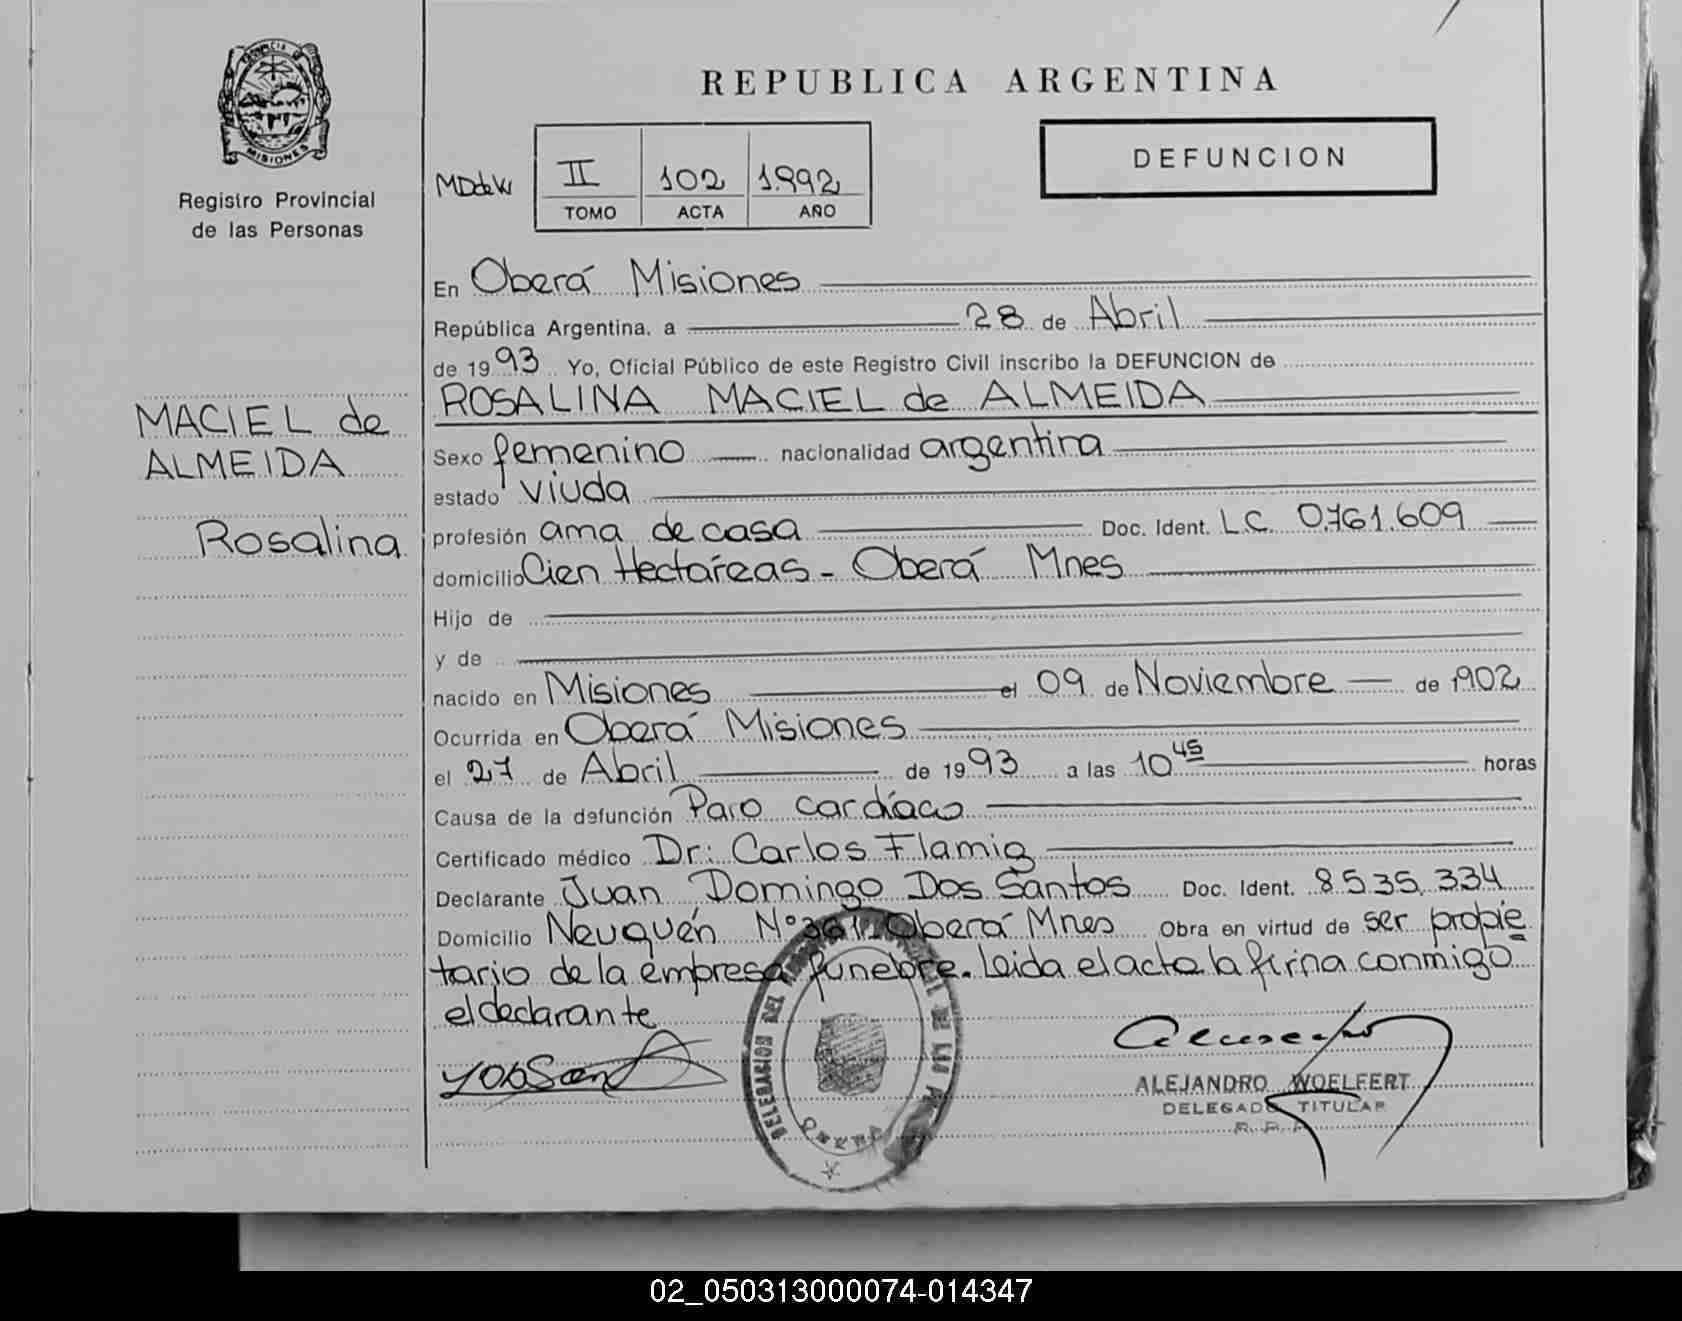 REPUBLICA ARGENTINA
PROVINCIA DE
MISIONES
Registro Provincial
de las Personas
MDdeW
II 102 1.992
TOMO ACTA AÑO
DEFUNCION
En Oberá Misiones
República Argentina. a 28 de Abril
de 1993 Yo, Oficial Público de este Registro Civil inscribo la DEFUNCION de
ROSALINA MACIEL de ALMEIDA
MACIEL de
ALMEIDA
Rosalina
Sexo femenino nacionalidad argentina
estado viuda
profesión ama de casa Doc. Ident. L.C. 0.761.609
domicilio Cien Hectáreas - Oberá Mnes
Hijo de
y de
nacido en Misiones el 09 de Noviembre de 1902
Ocurrida en Oberá Misiones
el 27 de Abril de 1993 a las 10 45 horas
Causa de la defunción Paro cardíaco
Certificado médico Dr: Carlos Flamig
Declarante Juan Domingo Dos Santos Doc. Ident. 8.535.334
Domicilio Neuquén Nº 361 Oberá Mnes Obra en virtud de ser propie
tario de la empresa funebre. Leida el acta la firma conmigo
el declarante
DELEGACION DEL
OBERA
ALEJANDRO WOELFERT
DELEGADO TITULAR
R. P. P.
02_050313000074-014347